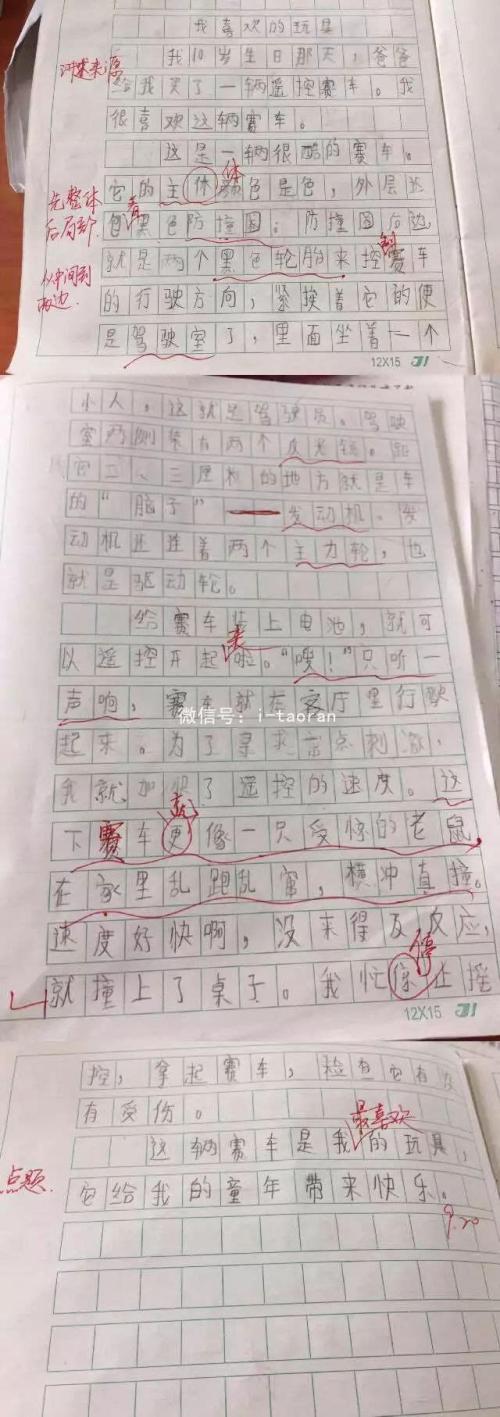 我喜欢的玩具
我10岁生日那天，爸爸
给我买了一辆遥控赛车。我
很喜欢这辆赛车。
这是一辆很酷的赛车。
体
它的主休颜色是色，外层还
先整体
后局部
有
包黑色防撞圈；防撞圈后边，
制
就是两个黑色轮胎来控赛车
从中间到
两边
的行驶方向，紧挨着它的便
是驾驶室了，里面坐着一个
12X15
小人，这就是驾驶员。驾驶
室两侧装有两个反光镜。距
它二、三厘米的地方就是车
的“脑子”——发动机。发
动机还连着两个主力轮，也
就是驱动轮。
给赛车装上电池，就可
来
以遥控开起啦。“嗖！”只听一
声响，赛车就在客厅里行驶
微信号：i-taoran
起来。为了寻求点刺激，
我就加快了遥控的速度。这
就
下赛车更像一只受惊的老鼠
在家里乱跑乱窜，横冲真撞。
速度好快啊，没来得及反应，
停
就撞上了桌子。我忙像止摇
12X15
控，拿起赛车，检查它有没
有受伤。
最喜欢
这辆赛车是我的玩具，
点题
它给我的童年带来快乐。
9.20